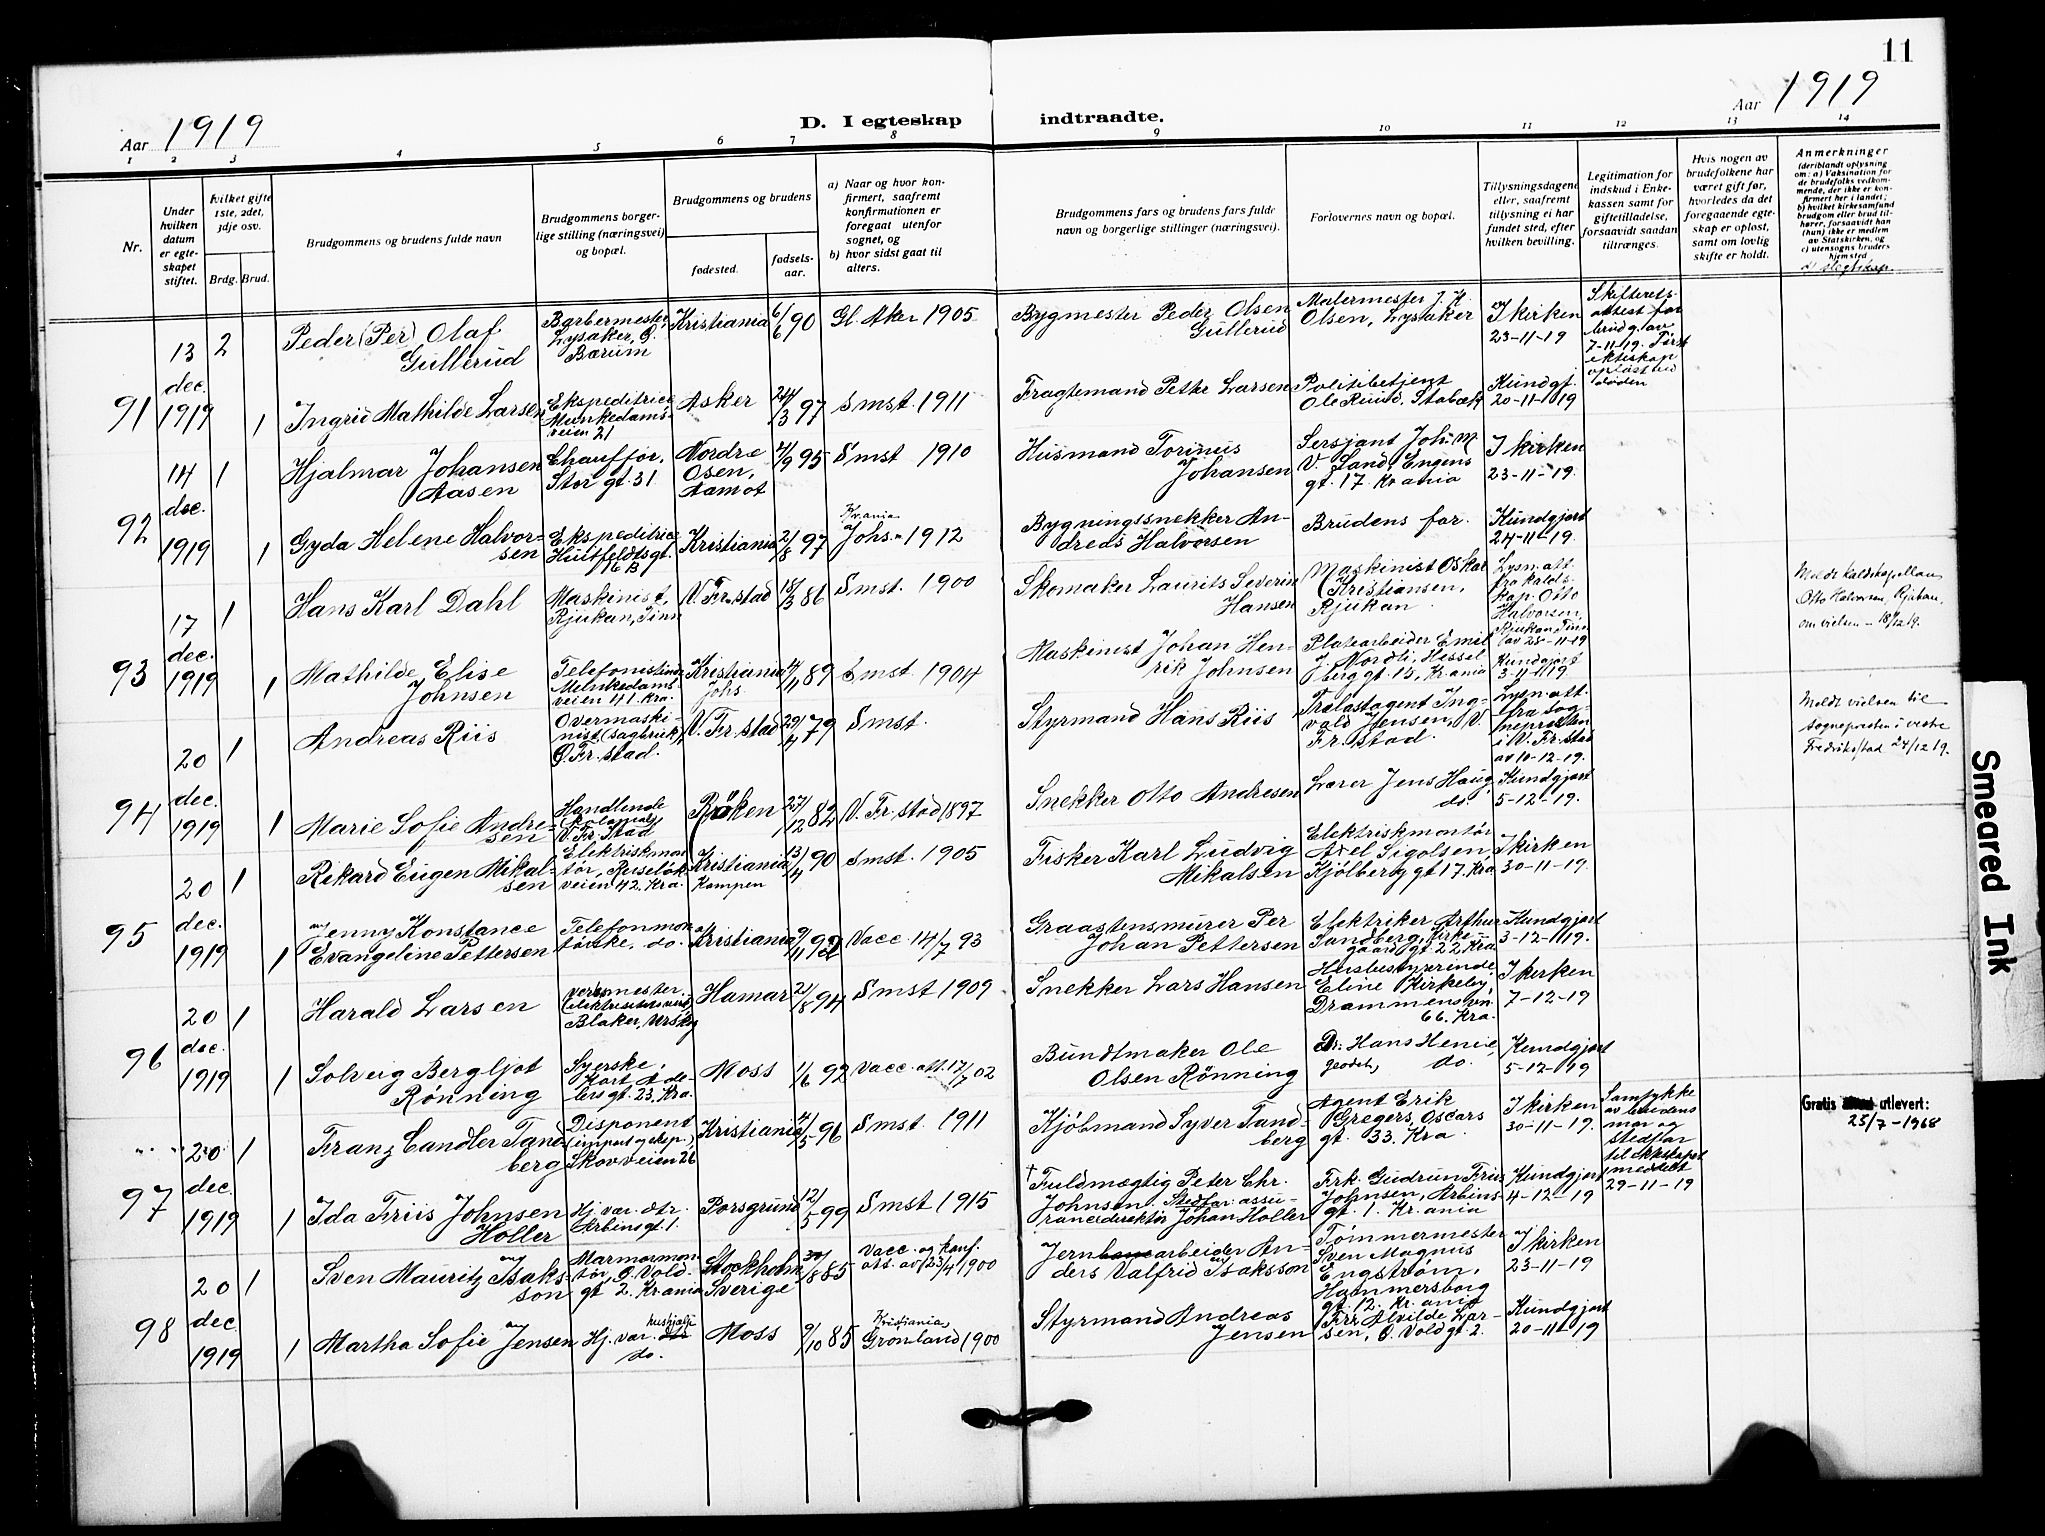 11
Aar 1919
D. I egteskap indtraadte.
Aar 1919
1 2 3 4 5 6 7 8 9 10 11 12 13 14
Nr.
Under
hvilken
datum
er egte-
skapet
stiftet.
hvilket gifte
1ste, 2det,
3dje osv.
Brdg. Brud.
Brudgommens og brudens fulde navn
Brudgommens borger-
lige stilling (næringsvei)
og bopæl.
Brudgommens og brudens
fødested.
fødsels-
aar.
a) Naar og hvor kon-
firmert, saafremt
konfirmationen er
foregaat utenfor
sognet, og
b) hvor sidst gaat til
alters.
Brudgommens fars og brudens fars fulde
navn og borgerlige stillinger (næringsvei).
Forlovernes navn og bopæl.
Tillysningsdagene
eller, saafremt
tillysning ei har
fundet sted, efter
hvilken bevilling.
Legitimation for
indskud i Enke-
kassen samt for
giftetilladelse,
forsaavidt saadan
tiltrænges.
Hvis nogen av
brudefolkene har
været gift før,
hvorledes da det
foregaaende egte-
skap er opløst,
samt om lovlig
skifte er holdt.
Anmerkninger
(deriblandt oplysning
om: a) Vaksination for
de brudefolks vedkom-
mende, der ikke er kon-
firmert her i landet;
b) hvilket kirkesamfund
brudgom eller brud til-
hører, forsaavidt han
(hun) ikke er medlem
av Statskirken, og
c) utensogns bruders
hjemsted
d) slegtskap.
91
13
dec.
1919
2
Peder (Per) Olaf
Gullerud
Barbermester,
Lysaker, Ø.
Bærum
Kristiania
6/6 90
Gl. Aker 1905
Bygmester Peder Olsen
Gullerud
Malermester J. K.
Olsen, Lysaker
I kirken
23-11-19
Skifterets-
attest for
brudg. av
7-11-19. Først
ekteskap
opløst ved
døden
1
Ingrid Mathilde Larsen
Ekspeditrice
Munkedams-
veien 21
Asker
24/3 97
Smst. 1911
Fragtemand Petter Larsen
Politibetjent
Ole Ruud, Stabæk
Kundgj.
20-11-19
92
14
dec.
1919
1
Hjalmar Johansen
Aasen
Chauffør,
Stor gt. 31
Nordre
Osen,
Aamot
/9 95
Smst 1910
Husmand Torinus
Johansen
Sersjant Joh. M.
V. Sand, Engens
gt. 17. Kr.ania
I kirken
23-11-19.
1
Gyda Helene Halvor-
sen
Ekspeditrice
Huitfeldtsgt.
16 B
Kristiania
2/8 97
Kr.ania
Johs. 1912
Bygningssnekker An-
dreas Halvorsen
Brudens far.
Kundgjort
24-11-19.
93
17
dec.
1919
1
Hans Karl Dahl
Maskinist,
Rjukan, Tinn
V. Fr.stad
18/3 86
Smst. 1900
Skomaker Laurits Severin
Hansen
Maskinist Oskar
Kristiansen,
Rjukan.
Lysn. att.
fra kalds-
kap. Otto
Halvorsen,
Rjukan Tinn
av 28-11-19
Meldt kaldskapellan
Otto Halvorsen, Rjukan,
om vielsen - 18/12 19.
1
Mathilde Elise
Johnsen
Telefonistinde
Munkedams-
veien 41. Kra.
Kristiania
Johs.
4/11 89
Smst 1904
Maskinist Johan Hen-
rik Johnsen
Platearbeider Emil
J. Nordli, Hessel
berg gt. 15, Kr.ania
Kundgjort
3-11-19.
94
20
dec.
1919
1
Andreas Riis
Overmaski-
nist (sagbruk),
Ø. Fr.stad.
V. Fr.stad
29/4 79
Smst.
Styrmand Hans Riis
Trælastagent Ing-
vald Jensen, V.
Fr.stad.
Lysn. att.
fra sog-
nepresten
i V. Fr.stad
av 10-12-19.
Meldt vielsen til
sognepresten i vestre
Fredrikstad 24/12 19.
1
Marie Sofie Andre-
sen
Handlende
(kolonial)
V. Fr.stad
Røken
27/12 82
V. Fr.stad 1897
Snekker Otto Andresen
Lærer Jens Haug
do.
Kundgjort
5-12-19.
95
20
dec.
1919
1
Rikard Eugen Mikal-
sen
Elektriskmon
tør, Ruseløk-
veien 42. Kra.
Kristiania
Kampen
13/4 90
Smst. 1905
Fisker Karl Ludvig
Mikalsen
Elektriskmontør
Axel Sigolsen,
Kjølberg gt 17. Kra
I kirken
30-11-19.
1
Jenny Konstance
Evangeline Pettersen
Telefonmon
tørske, do.
Kristiania
9/11 92
Vacc. 14/7 93
Graastensmurer Per
Johan Pettersen
Elektriker Arthur
Sandberg, Kirke-
gaard gt. 22, Kra.
Kundgjort
3-12-19.
96
20
dec.
1919
1
Harald Larsen
verksmester
(elektrisitetsverk)
Blaker, Urskog
Hamar
21/8 94
Smst 1909
Snekker Lars Hansen
Husbestyrerinde
Eline Kirkeby,
Drammensvn.
66. Kra.
I kirken
7-12-19
1
Solveig Bergljot
Rønning
Syerske,
Kort Ade-
lersgt. 23. Kra.
Moss
1/6 92
Vacc. att. 17/7 02
Bundtmaker Ole
Olsen Rønning
Dr. Hans Henie,
geodet, do.
Kundgjort
5-12-19
97
20
dec.
1919
1
Franz Candler Tand-
berg
Disponent
(import og eksp.)
Skovveien 26
Kristiania
/5 96
Smst 1911
Kjøbmand Syver Tand-
berg
Agent Erik
Gregers, Oscars
gt. 33. Kra.
I kirken
30-11-19.
Samtykke
av brudens
mor og
stedfar
til ekteskapet
meddelt
29-11-19
Gratis utlevert:
25/7-1968
1
Ida Friis Johnsen
Holler
Hj. vær. dtr.
Arbinsgt. 1.
Porsgrund
12/5 99
Smst 1915
† Fuldmægtig Peter Chr.
Johnsen, Stedfar: assu-
rancedirektør Johan Holler
Frk. Gudrun Friis
Johnsen, Arbins
gt. 1. Kr.ania
Kundgjort
4-12-19
98
20
dec
1919
1
Sven Mauritz Isaks-
son
Marmormon-
tør, Ø. Vold-
gt 2. Kr.ania
Stockholm
Sverige
30/8 85
Vacc. og konf.
att. av 23/4 1900
Jernarbeider An-
ders Valfrid Isaksson
Tømmermester
Sven Magnus
Engstrøm,
Hammersborg
gt. 12. Kr.ania
I kirken
23-11-19
1
Martha Sofie Jensen
Hj. vær. hushjælp
do.
Moss
9/10 85
Kristiania,
Grønland 1900
Styrmand Andreas
Jensen
Fru Alvilde Lar-
sen, Ø. Voldgt. 2.
Kundgjort
20-11-19
Smeared Ink